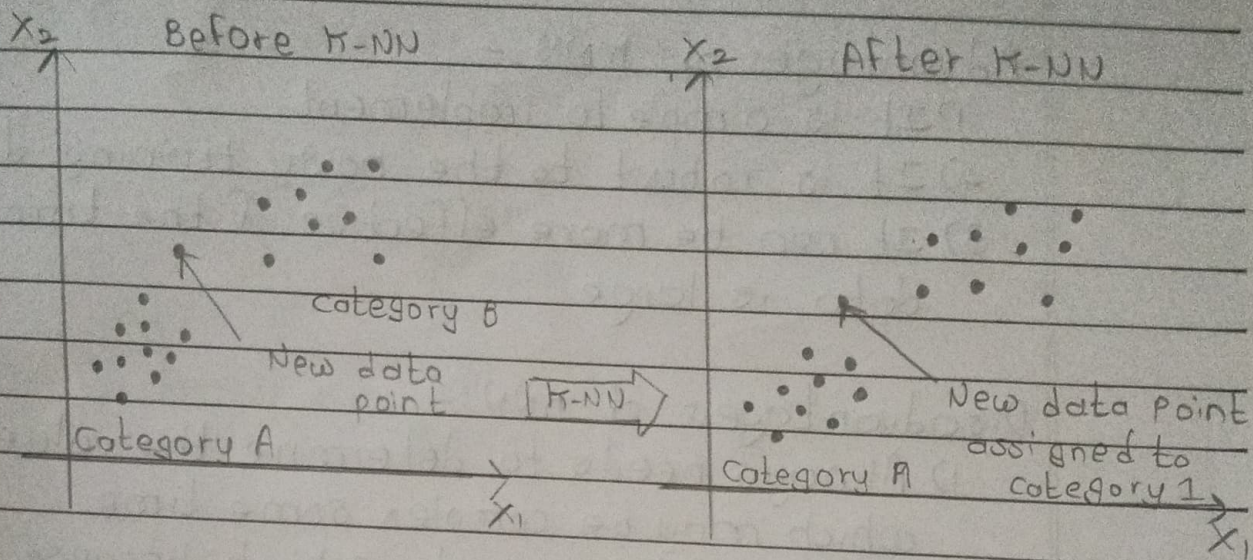 X2
Before K-NN
Category B
New data
point
K-NN
Category A
X1
X2
After K-NN
New data point
assigned to
category 1
Category A
X1